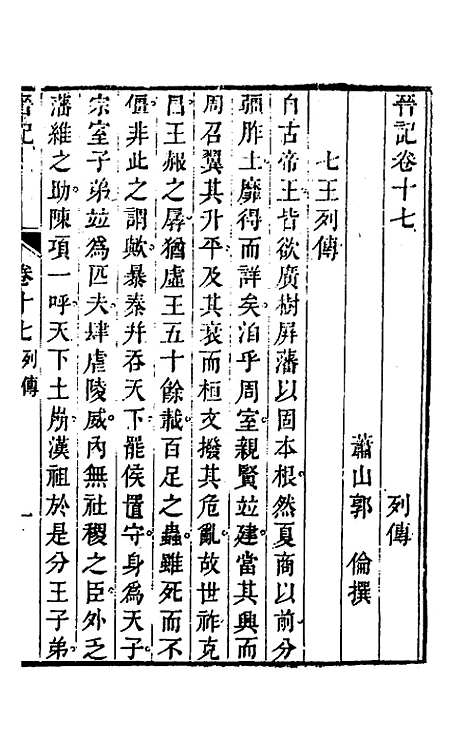 晉記卷十七
列傳
蕭山郭 倫撰
七王列傳
自古帝王皆欲廣樹屏藩以固本根然夏商以前分
彊胙土靡得而詳矣洎乎周室親賢竝建當其興而
周召翼其升平及其衰而桓文撥其危亂故世祚克
昌王赧之孱猶虛王五十餘載百足之蟲雖死而不
僵非此之謂歟暴秦幷吞天下罷侯置守身爲天子
宗室子弟竝爲匹夫肆虐陵威內無社稷之臣外乏
藩維之助陳項一呼天下土崩漢祖於是分王子弟
晉記
卷十七
列傳
一